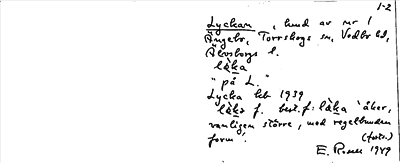 1-2
Lyckan, hund av nr 1
Ängebo, Torrskogs sn, Vedbo hd,
Älvsborgs l.
làka
"på L."
Lycka hb 1939
làka f. best. f: làka 'åker,
vanligen större, med regelbunden
form'. (forts.)
E. Rosell 1949